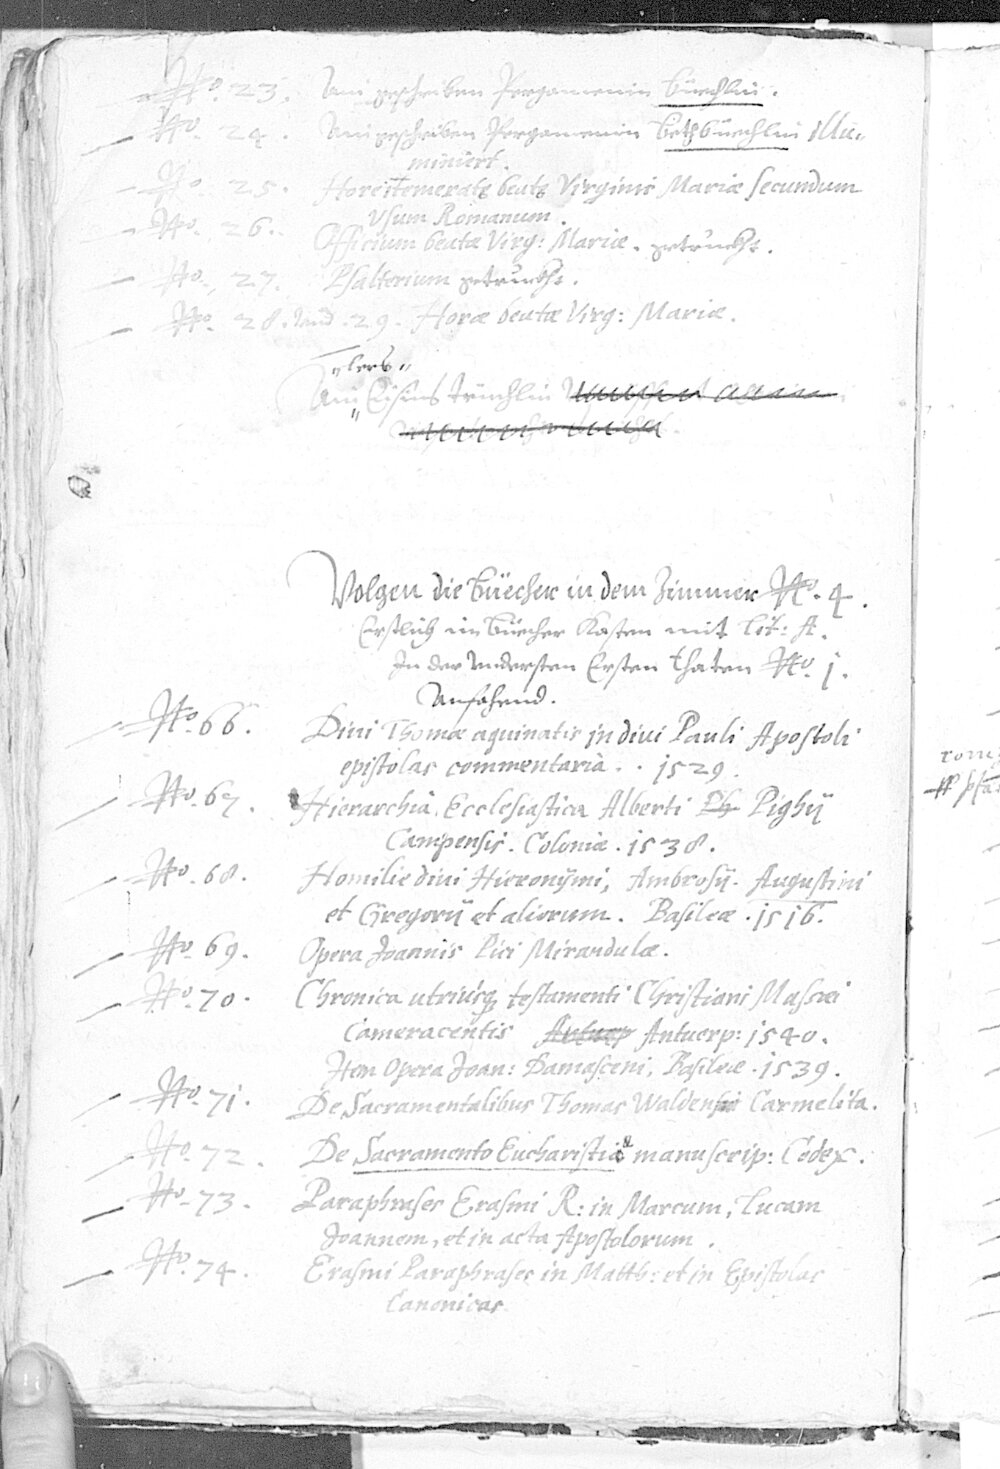 No. 23. Ain geschriben Pergamenin büechlin.
No. 24. Ain geschriben Pergamenin Bethbüechlin Illu-
miniert.
No. 25. Hore Itemeratę beatę Virginis Mariæ secundum
Vsum Romanum.
No. 26. Officium beatæ Virg: Mariæ. getruckht.
No. 27. Psalterium getruckht.
No. 28. vnd .29. Horæ beatæ Virg: Mariæ.
lers
Ain Eisins trüchlin
Volgen die büecher in dem Zimmer No. 4.
Erstlich im büecher Kasten mit Lit: A.
In der Understen Ersten thaten No. 1.
Anfahend.
No. 66. Diui Thomæ aquinatis in diui Pauli Apostoli
epistolas commentaria. . 1529.
No. 67. Hierarchia Ecclesiastica Alberti Ph Pighij
Campensis. Coloniæ. 1538.
No. 68. Homilie diui Hieronymi, Ambrosij. Augustini
et Gregorij et aliorum. Basileæ. 1516.
No. 69. Opera Joannis Pici Mirandulæ.
No. 70. Chronica utriusq testamenti Christiani Massæi
Cameracentis Antuerp Antuerp: 1540.
Item Opera Joan: Damasceni, Basileæ. 1539.
No. 71. De Sacramentalibus Thomas Waldensis Carmelita.
No. 72. De Sacramento Eucharistiæ manuscrip: Codex.
No. 73. Paraphrases Erasmi R: in Marcum, Lucam
Joannem, et in acta Apostolorum.
No. 74. Erasmi Paraphrases in Matth: et in Epistolas
Canonicas